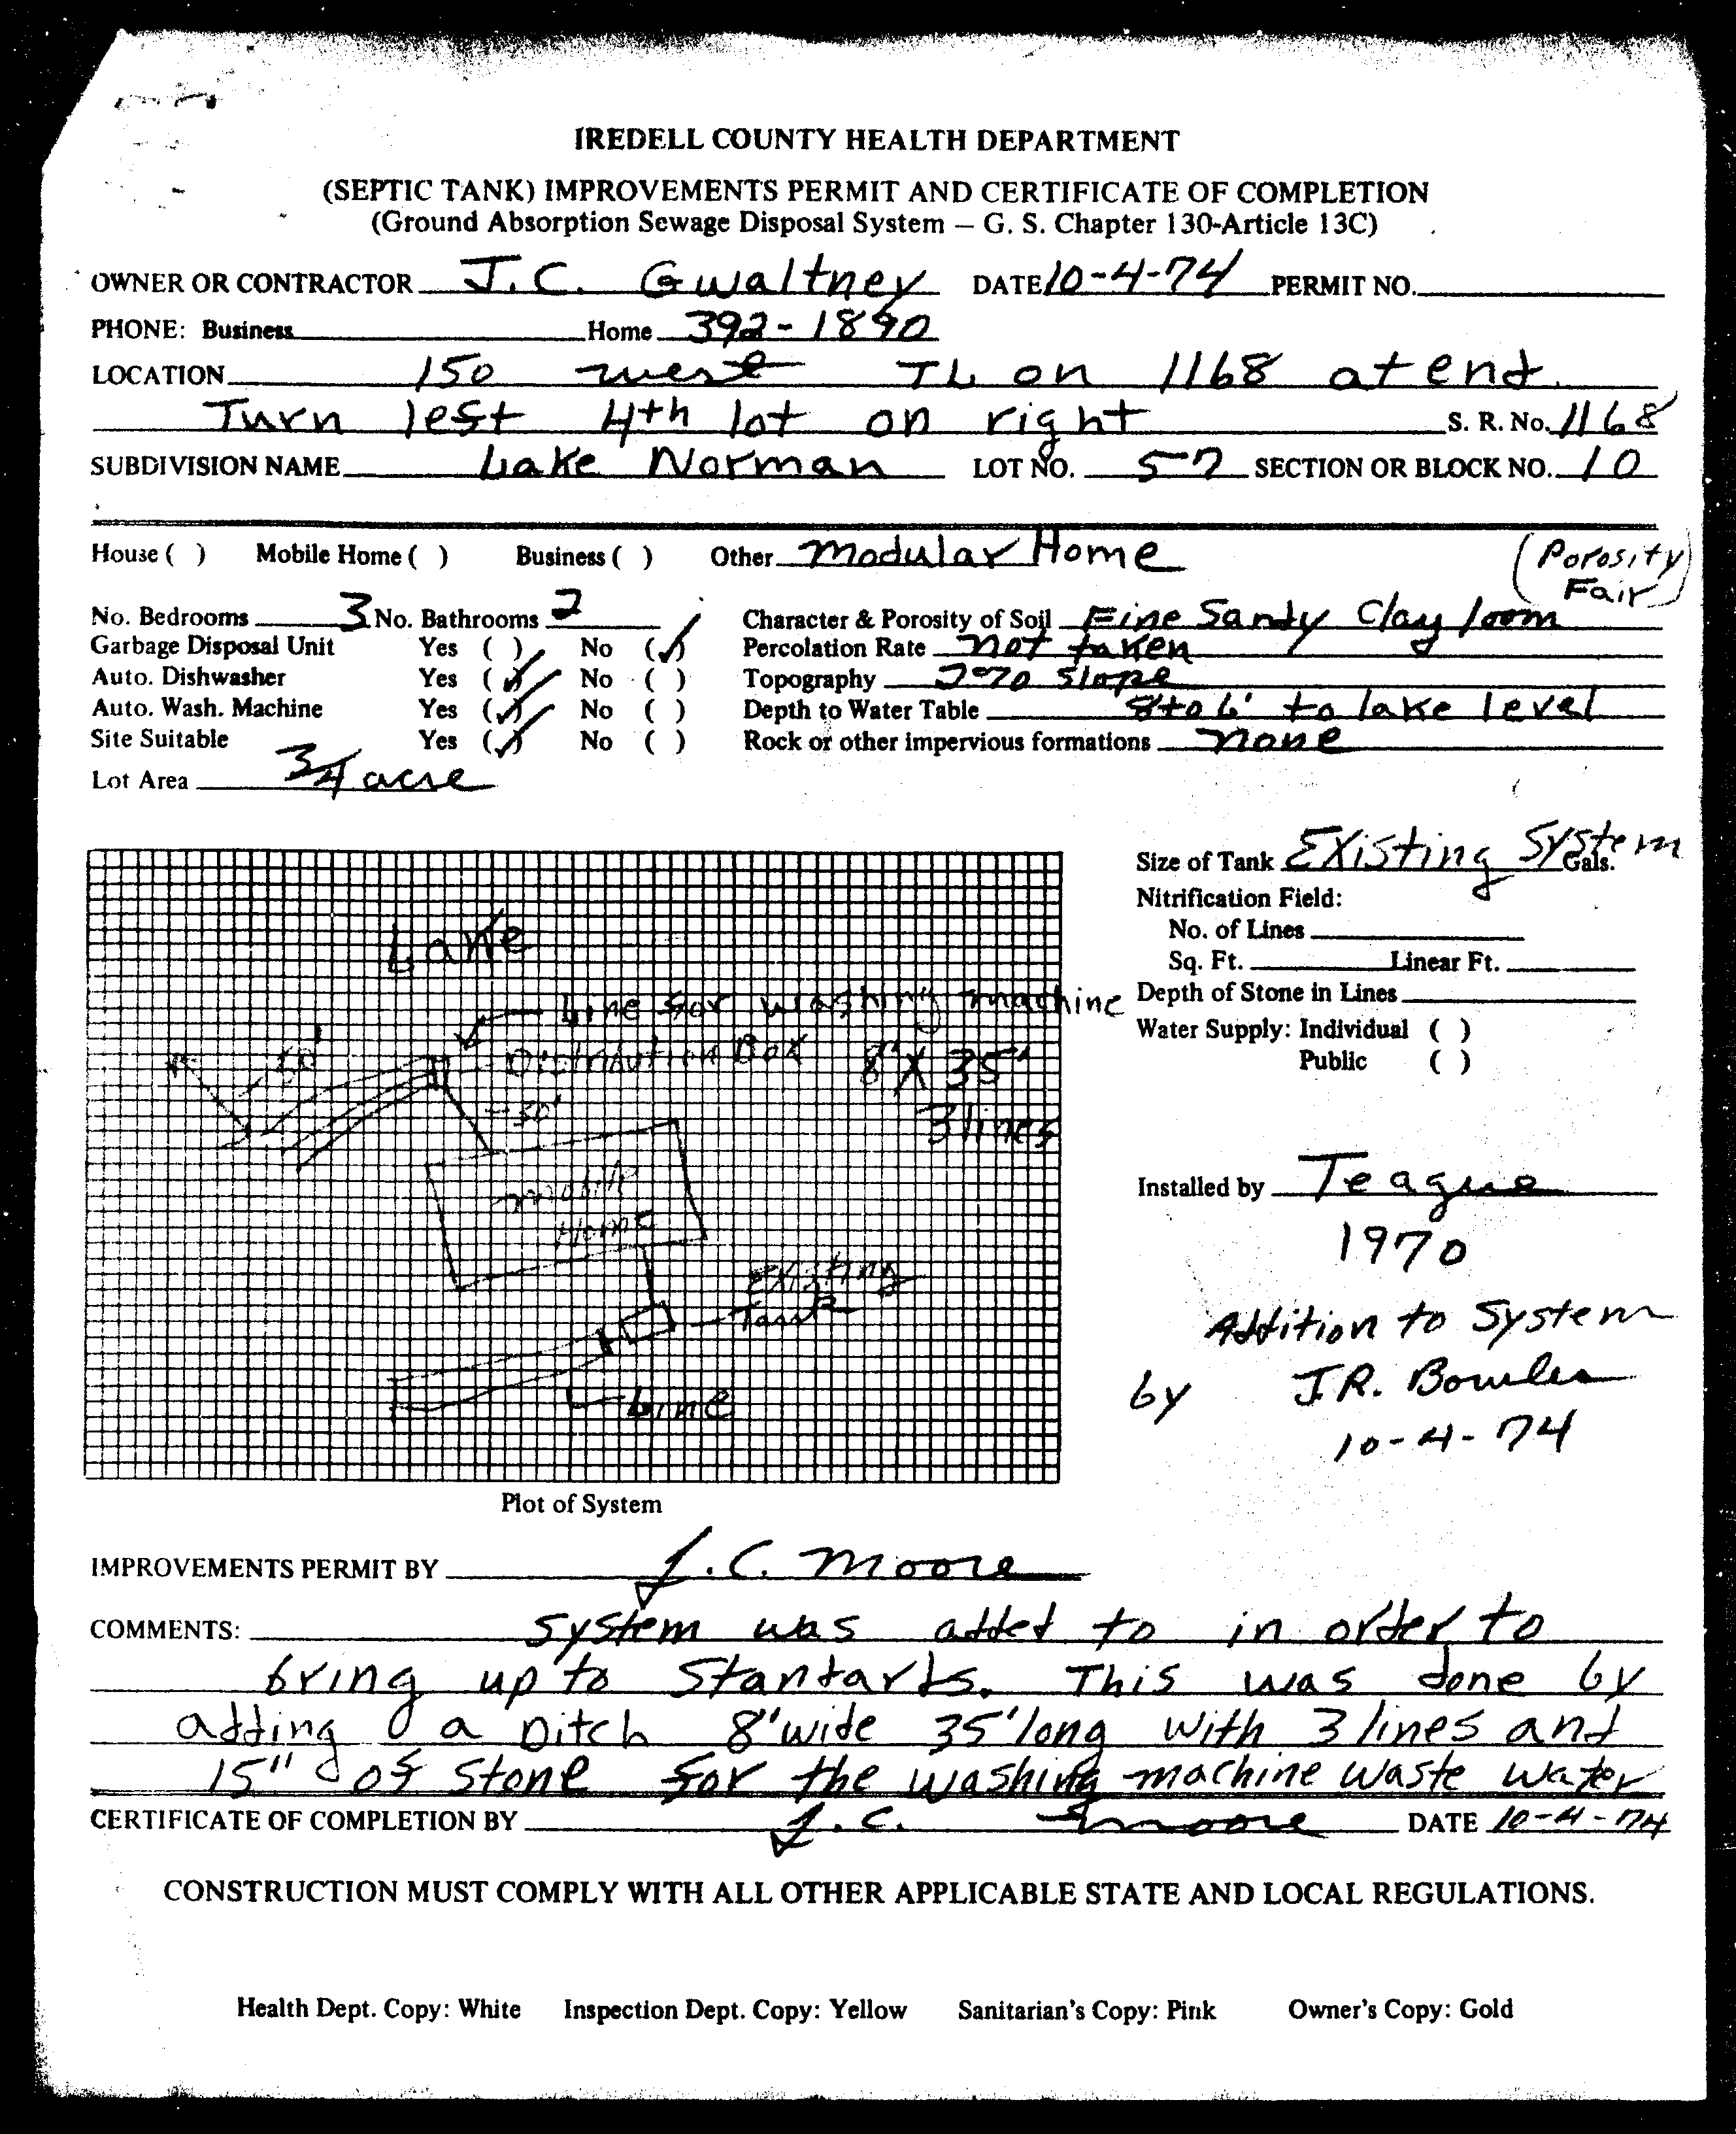 IREDELL COUNTY HEALTH DEPARTMENT
(SEPTIC TANK) IMPROVEMENTS PERMIT AND CERTIFICATE OF COMPLETION
(Ground Absorption Sewage Disposal System — G. S. Chapter 130-Article 13C)
OWNER OR CONTRACTOR J.C. Gwaltney DATE 10-4-74 PERMIT NO.
PHONE: Business Home 392-1890
LOCATION 150 west TL on 1168 at end
Turn left 4th lot on right S. R. No. 1168
SUBDIVISION NAME Lake Norman LOT NO. 57 SECTION OR BLOCK NO. 10
House ( ) Mobile Home ( ) Business ( ) Other Modular Home (Porosity
Fair)
No. Bedrooms 3 No. Bathrooms 2 Character & Porosity of Soil Fine Sandy Clay loom
Garbage Disposal Unit Yes ( ) No (✓) Percolation Rate not taken
Auto. Dishwasher Yes (✓) No ( ) Topography slope
Auto. Wash. Machine Yes (✓) No ( ) Depth to Water Table to lake level
Site Suitable Yes (✓) No ( ) Rock or other impervious formations none
Lot Area 3/4 acre
Size of Tank Existing System Gals.
Nitrification Field:
No. of Lines
Sq. Ft. Linear Ft.
Depth of Stone in Lines
Water Supply: Individual ( )
Public ( )
Installed by Teague
1970
Addition to System
by J.R. Bowles
10-4-74
Lake
Line for washing machine
50'
Distribution Box 8' X 35'
50'
3 lines
mobile
Home
Existing
Tank
Line
Plot of System
IMPROVEMENTS PERMIT BY J.C. Moore
COMMENTS: System was added to in order to
bring up to Standards. This was done by
adding a Ditch 8' wide 35' long with 3 lines and
15" of Stone for the washing machine waste water
CERTIFICATE OF COMPLETION BY J.C. Moore DATE 10-4-74
CONSTRUCTION MUST COMPLY WITH ALL OTHER APPLICABLE STATE AND LOCAL REGULATIONS.
Health Dept. Copy: White Inspection Dept. Copy: Yellow Sanitarian's Copy: Pink Owner's Copy: Gold